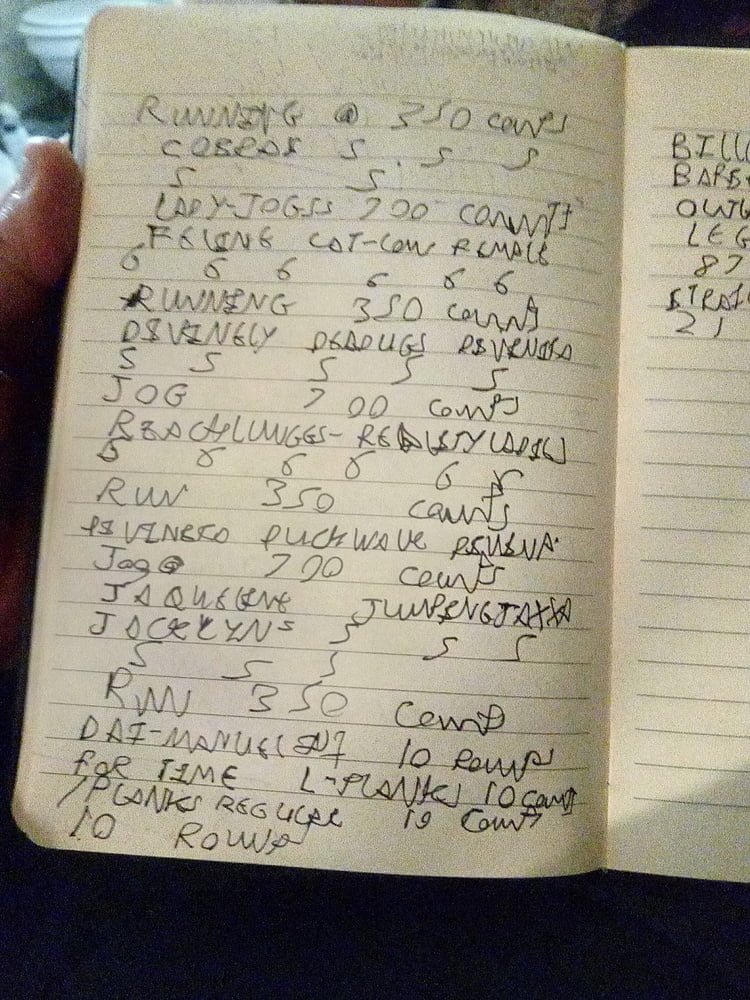 RUNNING @ 350 counts
COBRAS 5 . 5 5
5 5
LADY-JOGSS 700 COUNTS
FELINE CAT-COW FEMALE
6 6 6 6 6 6
RUNNING 350 counts
DIVINELY DEADUGS
5 5 5 5 5
JOG 700 counts
REACHLUNGES-
6 6 6 6 6 6
RUN 350 counts
DUCKWAVE
Jog @ 700 counts
JAQUELINE
JACKLYNS 5
5 5 5 5 5
RUN 350 Counts
10 Rounds
FOR TIME L-PLANKS 10 counts
/PLANKS REGULAR 10 Counts
10 ROUNDS
BILL
BARB
OUTW
LEG
87
STRAI
21